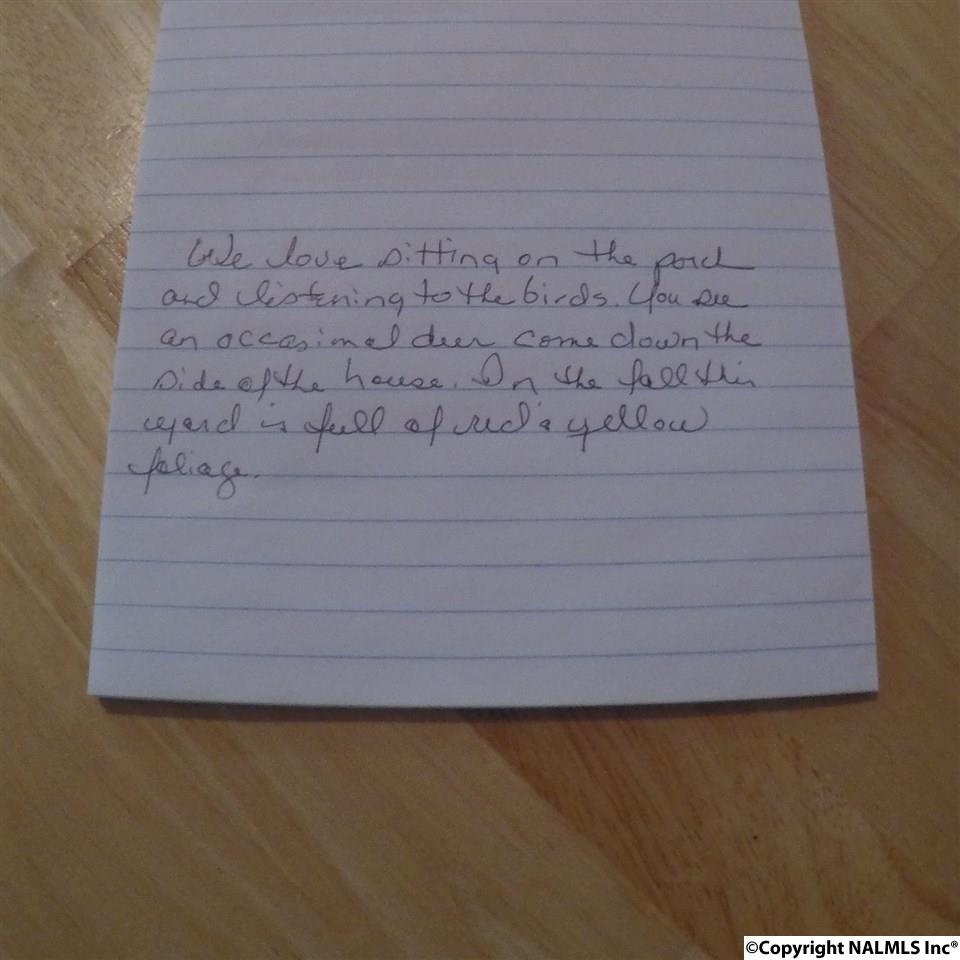 We love sitting on the porch
and listening to the birds. You see
an occasional deer come down the
side of the house. In the fall this
yard is full of red & yellow
foliage.
©Copyright NALMLS Inc®